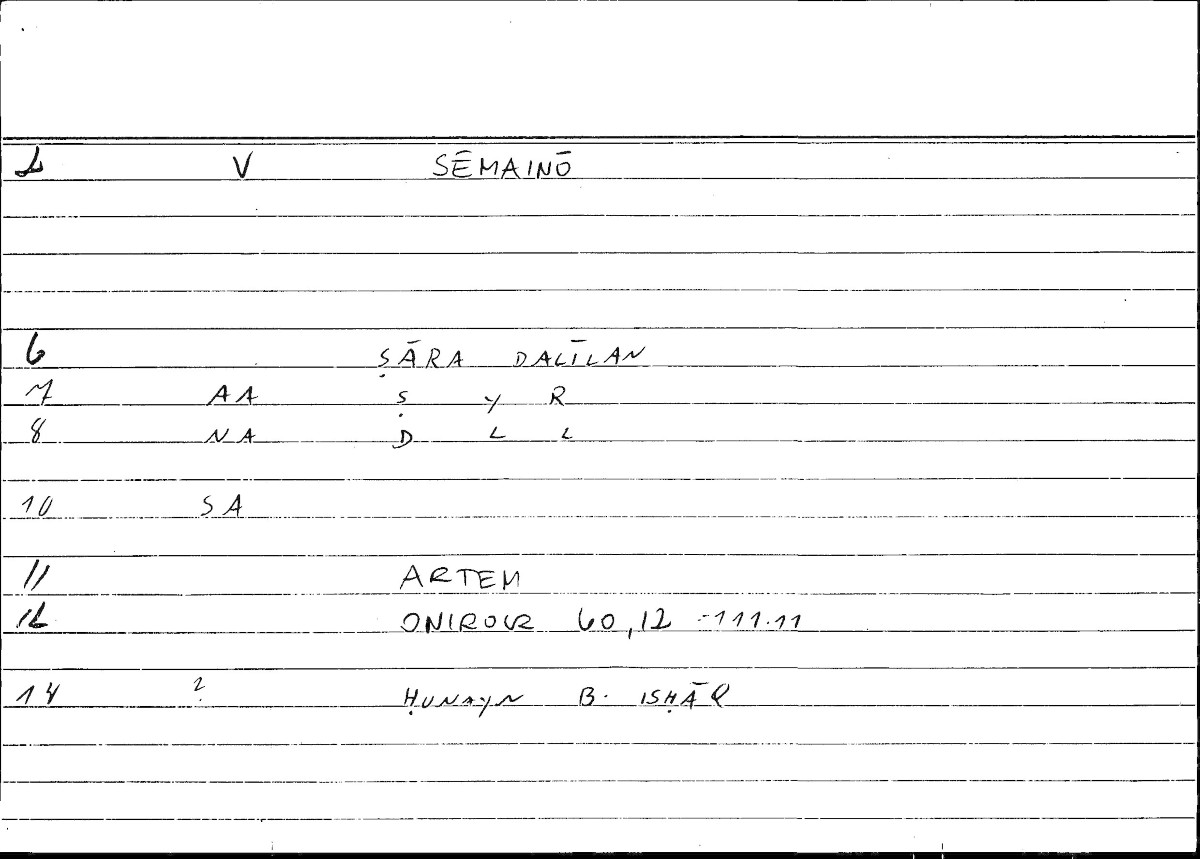 2 V SĒMAINŌ
6 ṢĀRA DALĪLAN
7 AA Ṣ Y R
8 NA D L L
10 SA
11 ARTEM
12 ONIROCR 60,12 - 111.11
14 ? ḤUNAYN B. ISḤĀQ